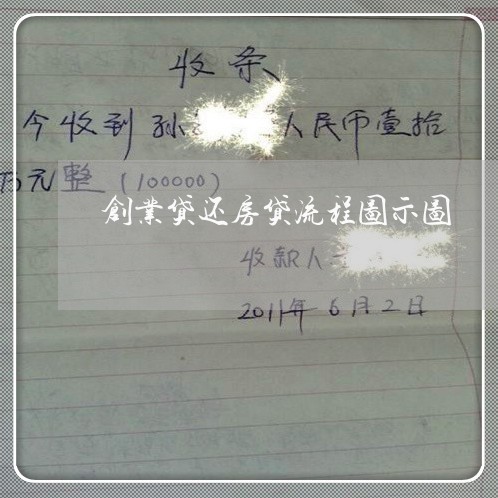 收条
今收到孙 人民币壹拾
万元整(100000)
創業贷还房贷流程圖示圖
收款人
2011年6月2日